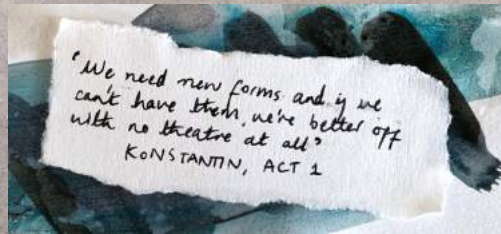 'We need new forms. and if we
can't have them, we're better off
with no theatre at all'
KONSTANTIN, ACT 1